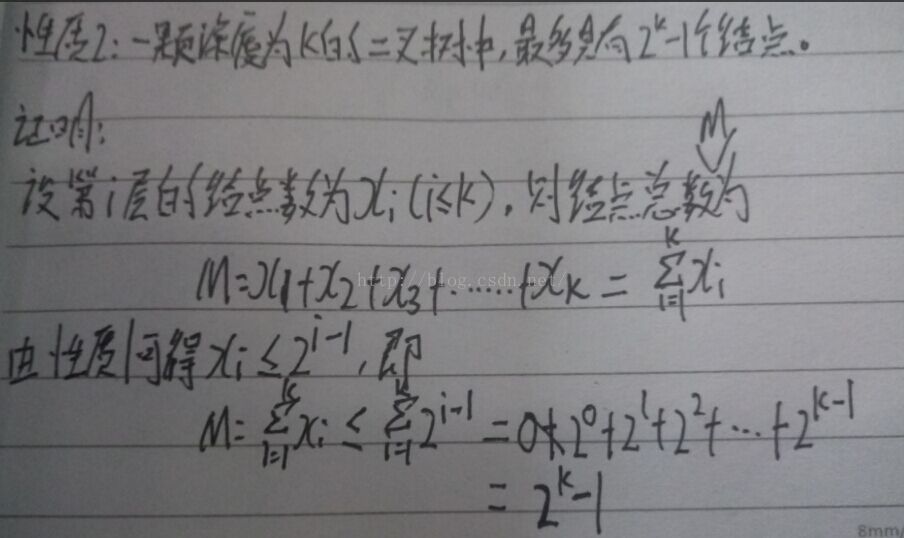 性质2:一颗深度为K的二叉树中,最多具有2^k-1个结点。
证明:
M
设第i层的结点数为x_i(i≤k),则结点总数为
M=x_1+x_2+x_3+……+x_k=∑_{i=1}^{K}x_i
http://blog.csdn.net/
由性质1可得x_i≤2^{i-1},即
M=∑_{i=1}^{k}x_i≤∑_{i=1}^{k}2^{i-1}=0+2^0+2^1+2^2+…+2^{k-1}
=2^k-1
8mm/